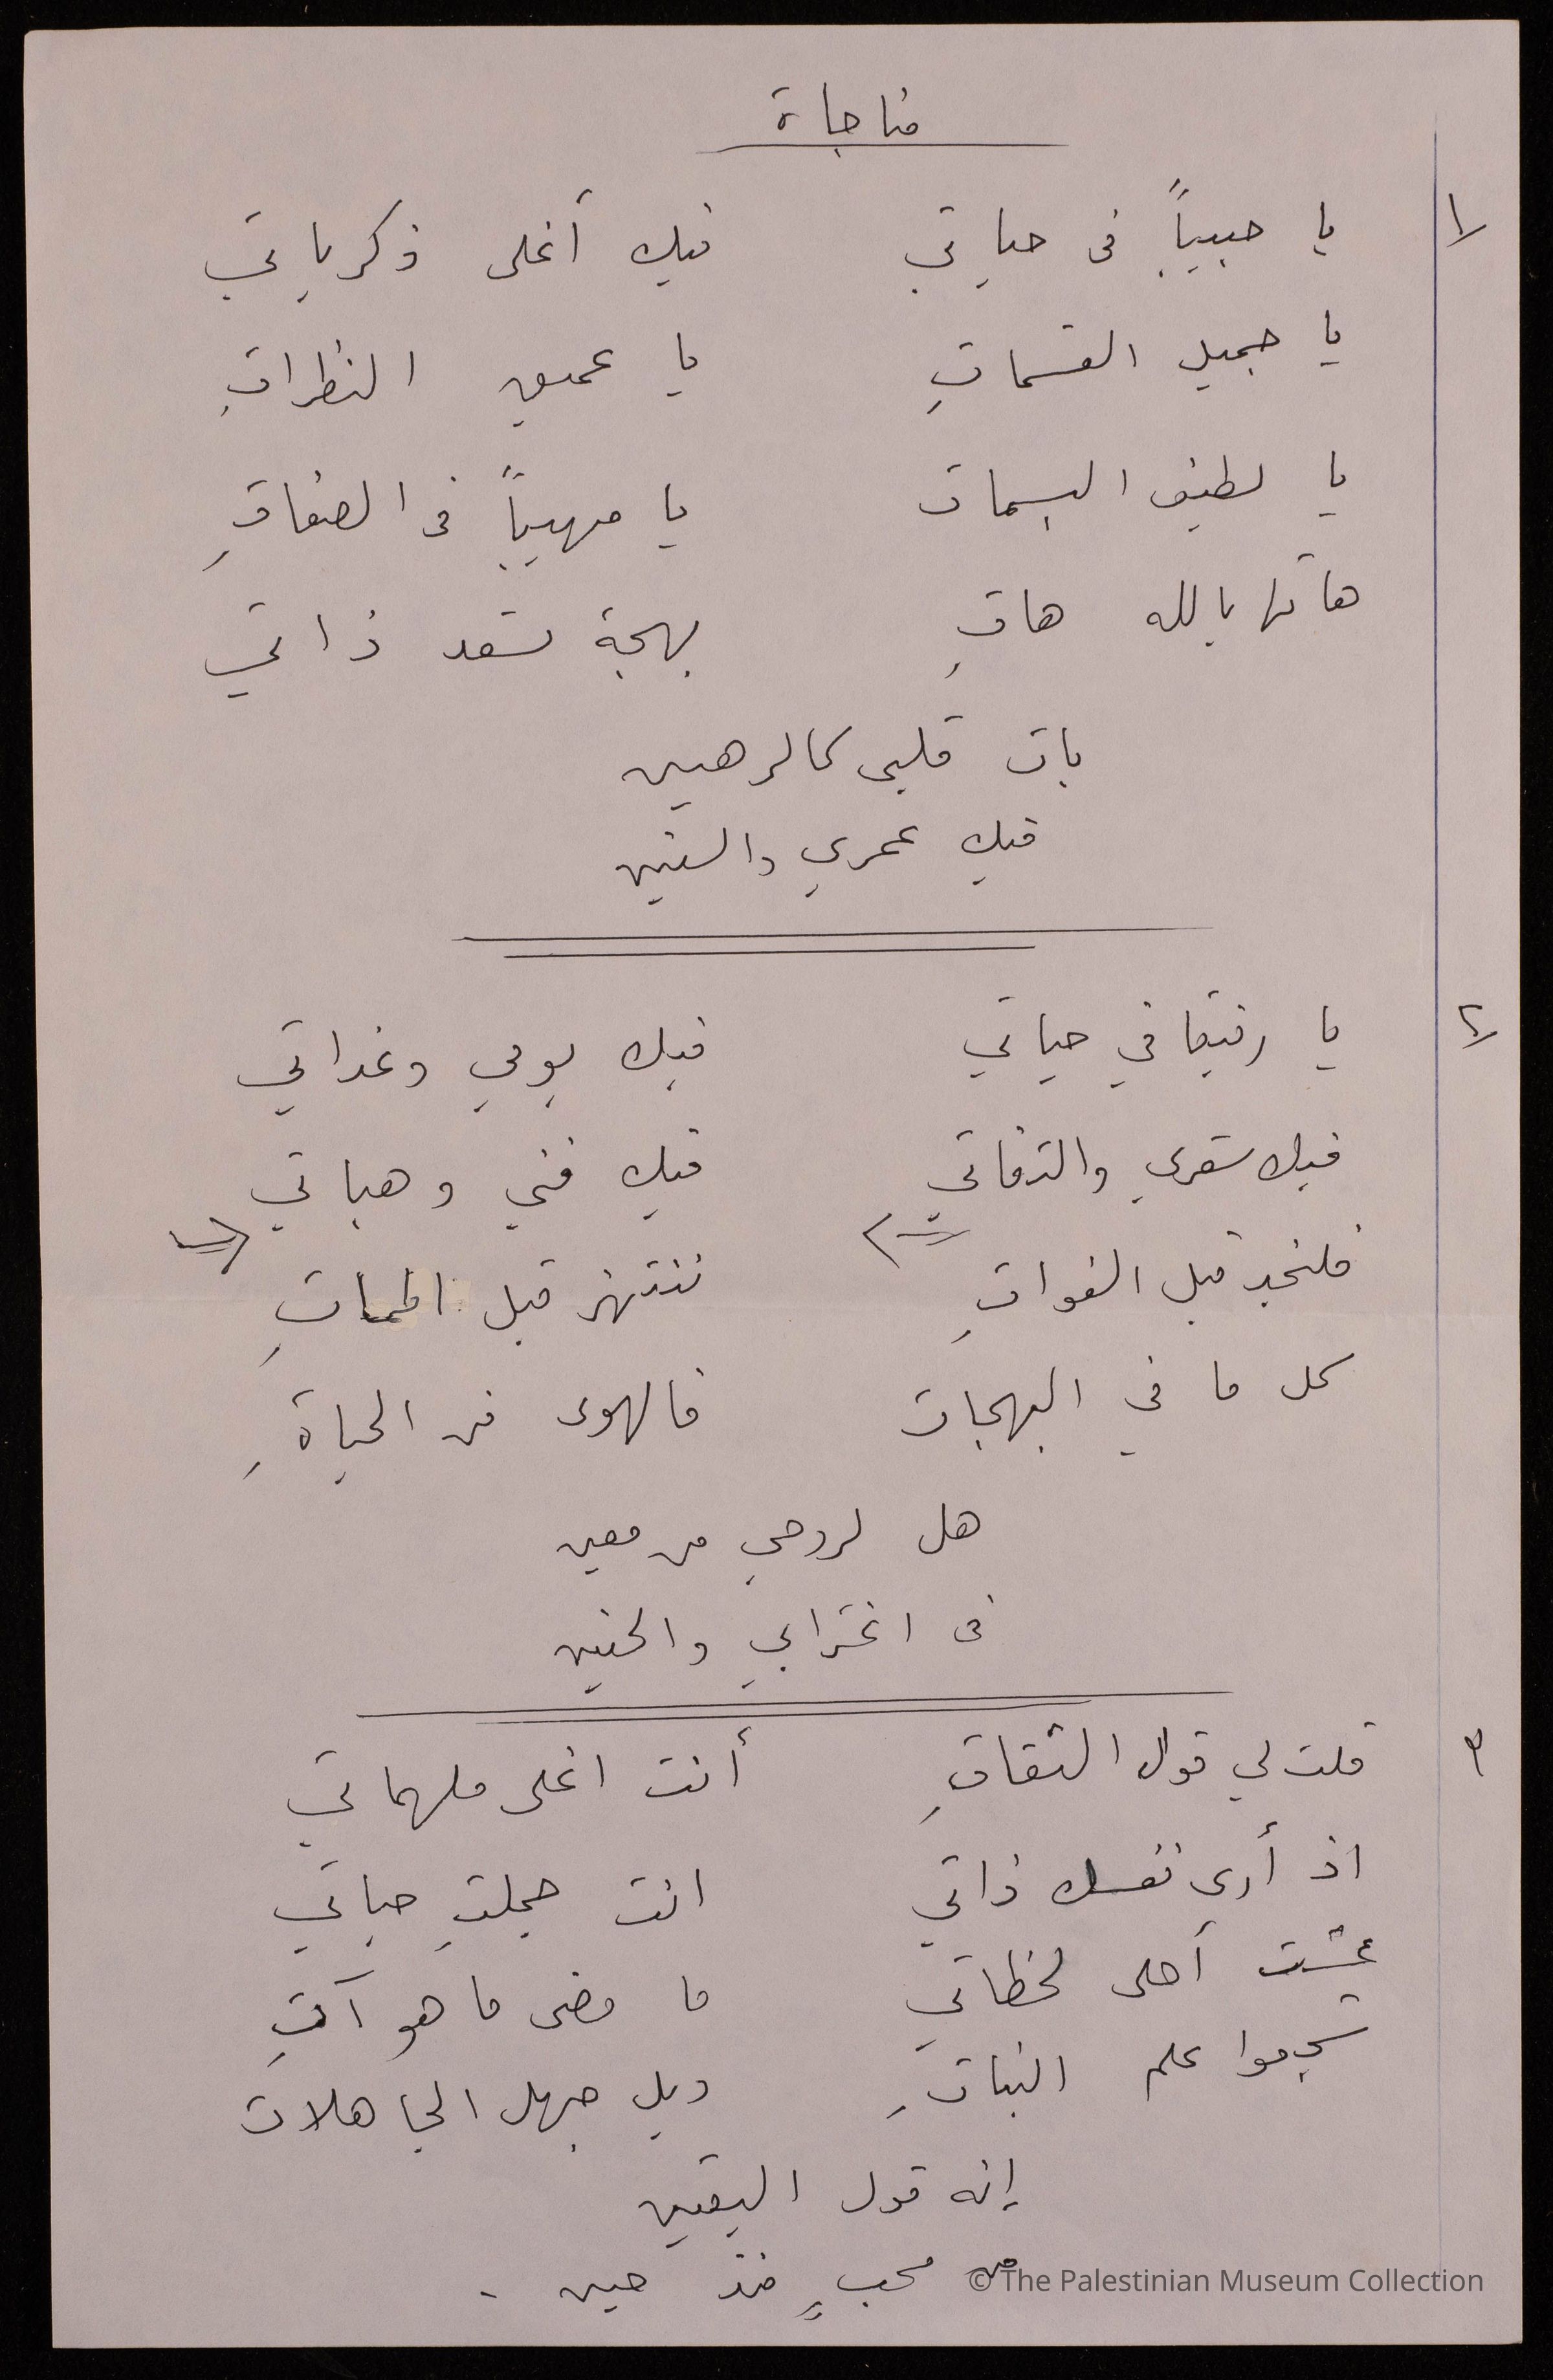 مناجاة
١ يا حبيباً في حياتي فيك أغلى ذكرياتي
يا جميل القسماتِ يا عميق النظراتِ
يا لطيف البسمات يا مهيباً في الصفاتِ
هاتها بالله هاتِ بهجة تسعد ذاتي
بات قلبي كالرهين
فيك عمري والسنين
٢ يا رفيقا في حياتي فيك يومي وغداتي
فيك شعري والتفاتي فيك فني وهباتي
فلنجد قبل الفواتِ ننتهز قبل المماتِ
كل ما في البهجات فالهوى فن الحياةِ
هل لروحي من معين
في اغترابي والحنين
٣ قلت لي قول الثقاتِ أنت اغلى ملهماتي
اذ أرى نفسك ذاتي انت جملتِ حياتي
عشت أحلى لحظاتي ما مضى ما هو آتِ
علم النباتِ ويل جهل الجاهلات
إنه قول اليقين
من محبٍ منذ حين .
© The Palestinian Museum Collection